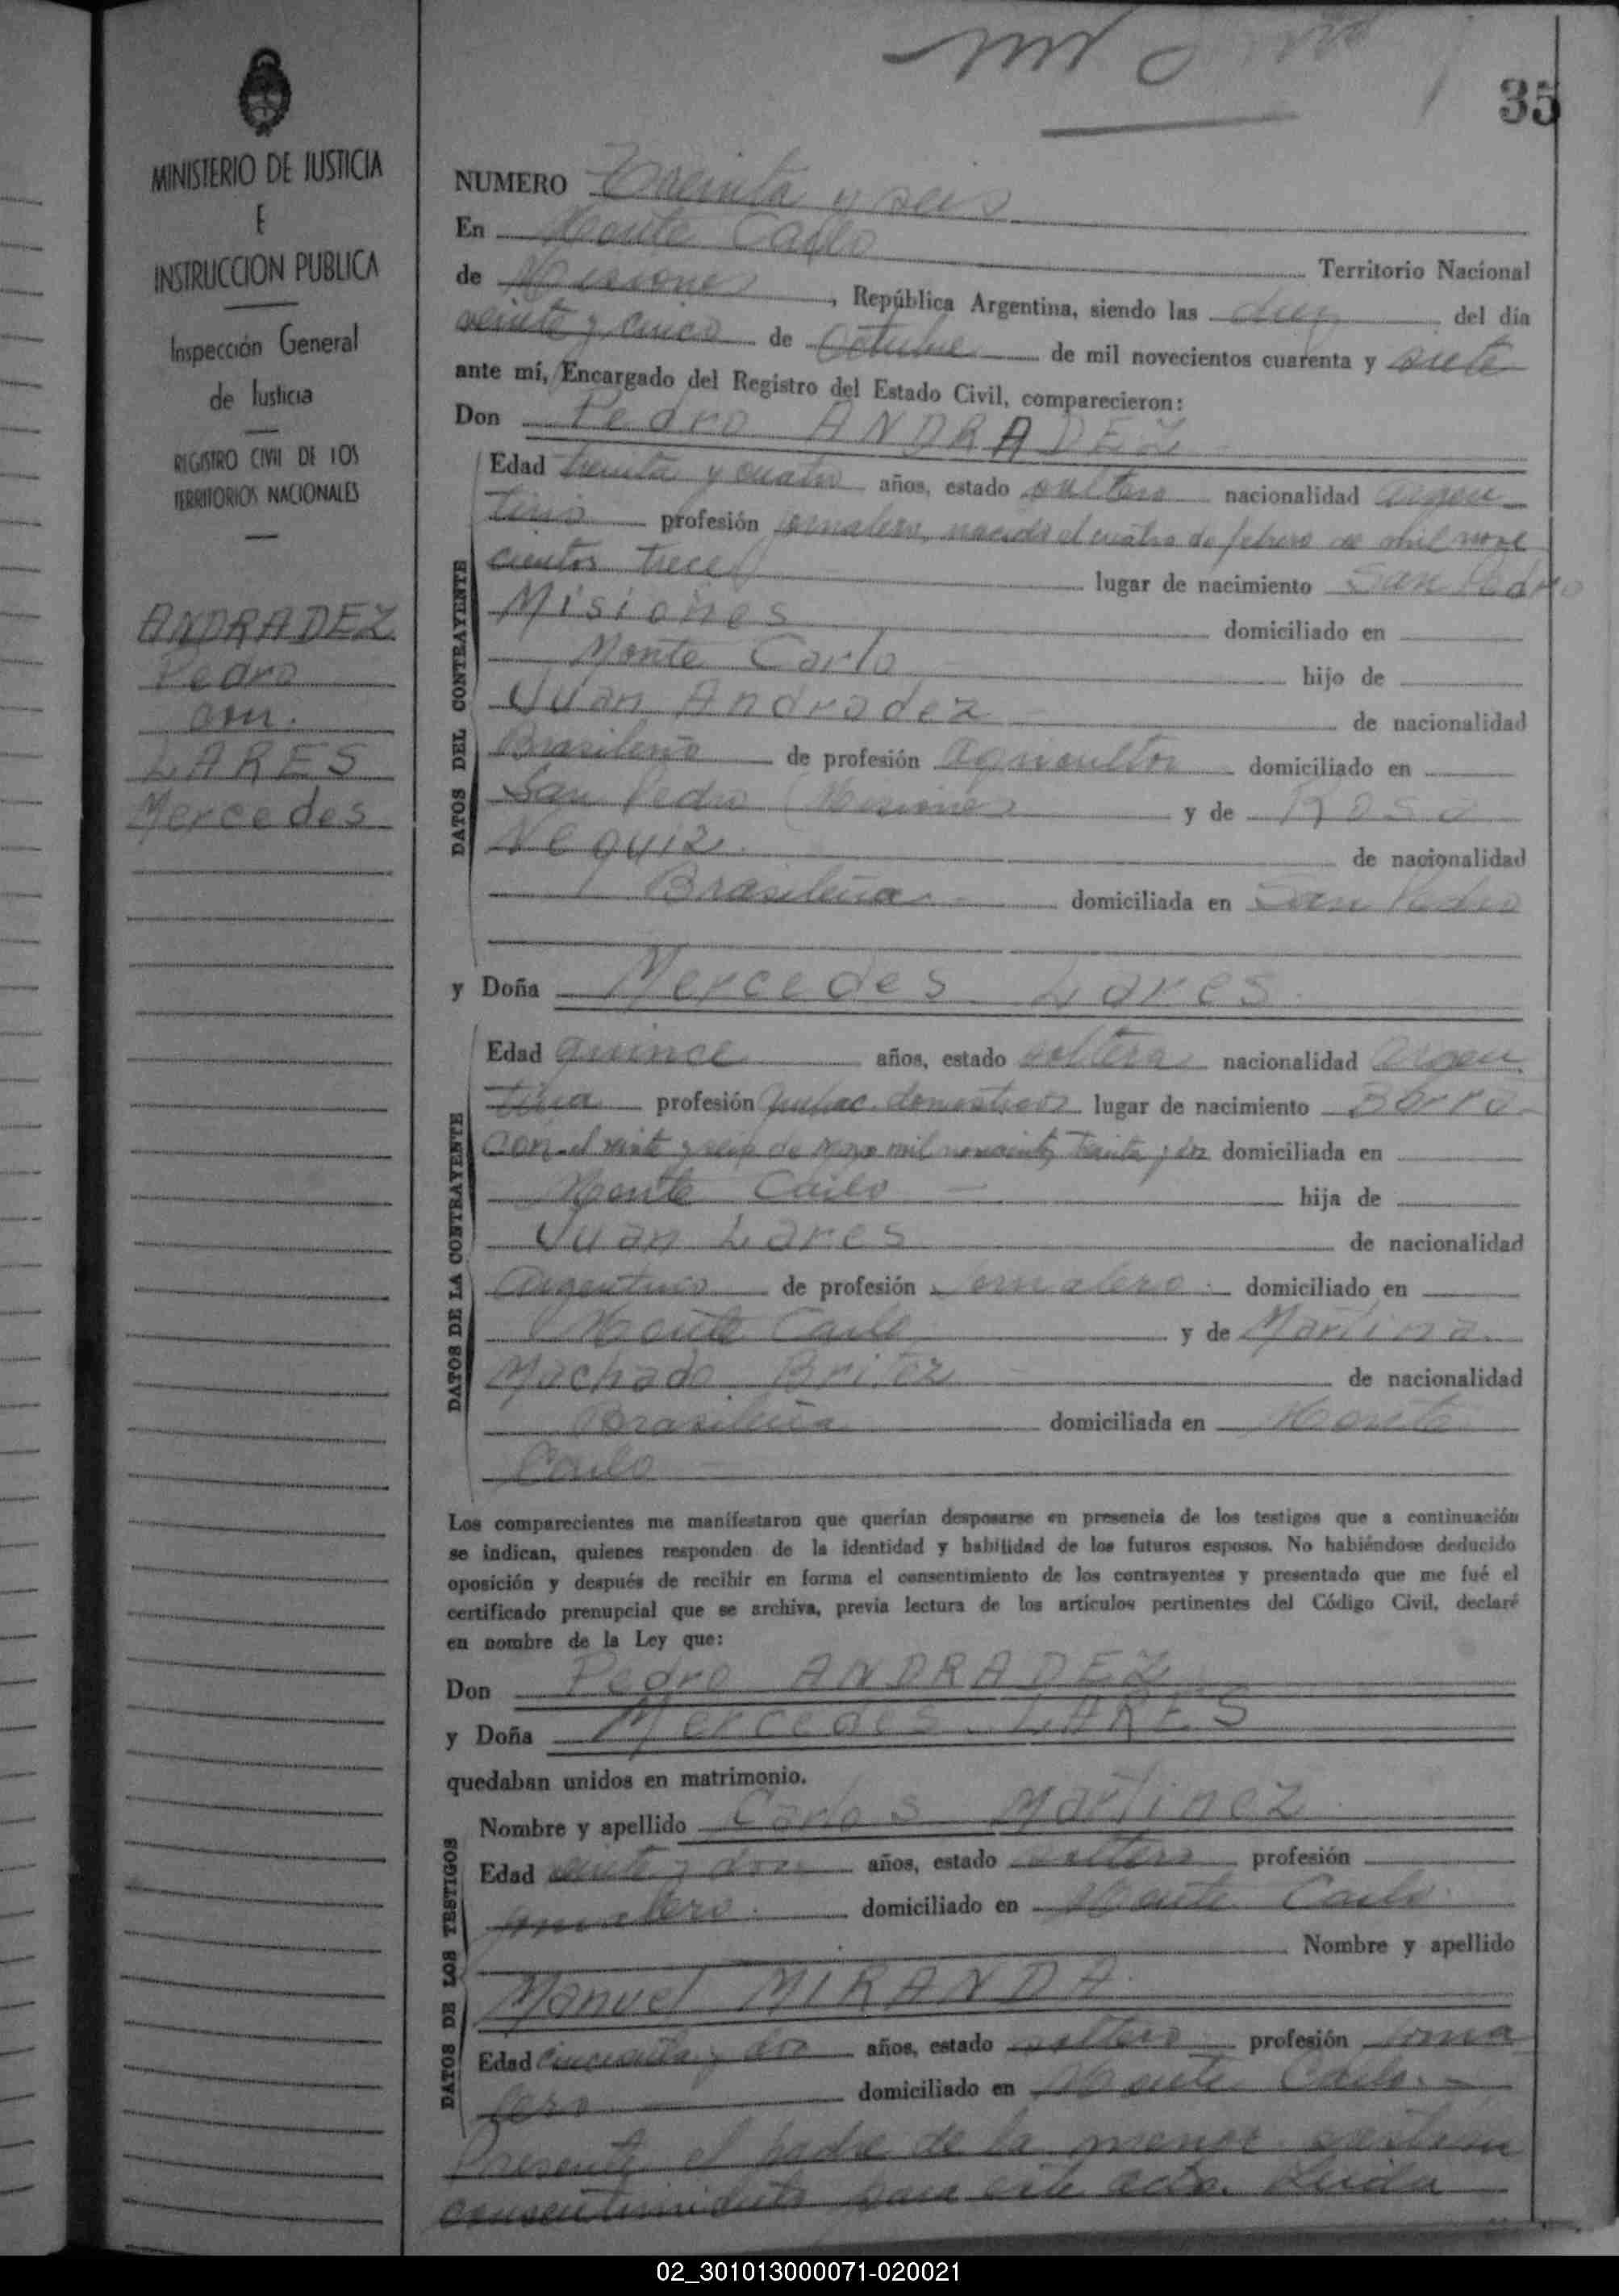 35
MINISTERIO DE JUSTICIA
E
INSTRUCCION PUBLICA
Inspección General
de Justicia
REGISTRO CIVIL DE LOS
TERRITORIOS NACIONALES
ANDRADEZ
Pedro
con.
LARES
Mercedes
NUMERO Treinta y seis
En Monte Carlo
Territorio Nacional
de Misiones, República Argentina, siendo las diez del día
veinte y cinco de Octubre de mil novecientos cuarenta y siete
ante mí, Encargado del Registro del Estado Civil, comparecieron:
Don Pedro ANDRADEZ
DATOS DEL CONTRAYENTE
Edad treinta y cuatro años, estado soltero nacionalidad argen
tino profesión jornalero, nacido el cuatro de febrero de mil nove
cientos trece lugar de nacimiento San Pedro
Misiones domiciliado en
Monte Carlo hijo de
Juan Andradez de nacionalidad
Brasileño de profesión agricultor domiciliado en
San Pedro (Misiones) y de Rosa
Neguiz de nacionalidad
Brasileña domiciliada en San Pedro
y Doña Mercedes Lares
DATOS DE LA CONTRAYENTE
Edad quince años, estado soltera nacionalidad argen
tina profesión quehac. domesticos lugar de nacimiento Barra
con el veinte y seis de mil novecientos treinta y dos domiciliada en
Monte Carlo hija de
Juan Lares de nacionalidad
Argentino de profesión Jornalero domiciliado en
Monte Carlo y de Martina
Machado Britez de nacionalidad
Brasileña domiciliada en Monte
Carlo
Los comparecientes me manifestaron que querían desposarse en presencia de los testigos que a continuación
se indican, quienes responden de la identidad y habilidad de los futuros esposos. No habiéndose deducido
oposición y después de recibir en forma el consentimiento de los contrayentes y presentado que me fué el
certificado prenupcial que se archiva, previa lectura de los artículos pertinentes del Código Civil, declaré
en nombre de la Ley que:
Don Pedro ANDRADEZ
y Doña Mercedes LARES
quedaban unidos en matrimonio.
DATOS DE LOS TESTIGOS
Nombre y apellido Carlos Martinez
Edad veinte y dos años, estado soltero profesión
jornalero. domiciliado en Monte Carlo.
Nombre y apellido
Manuel MIRANDA
Edad cincuenta y dos años, estado soltero profesión Jorna
lero. domiciliado en Monte Carlo.
Presente el padre de la menor
consentimiento para este acto. Leida
02_301013000071-020021